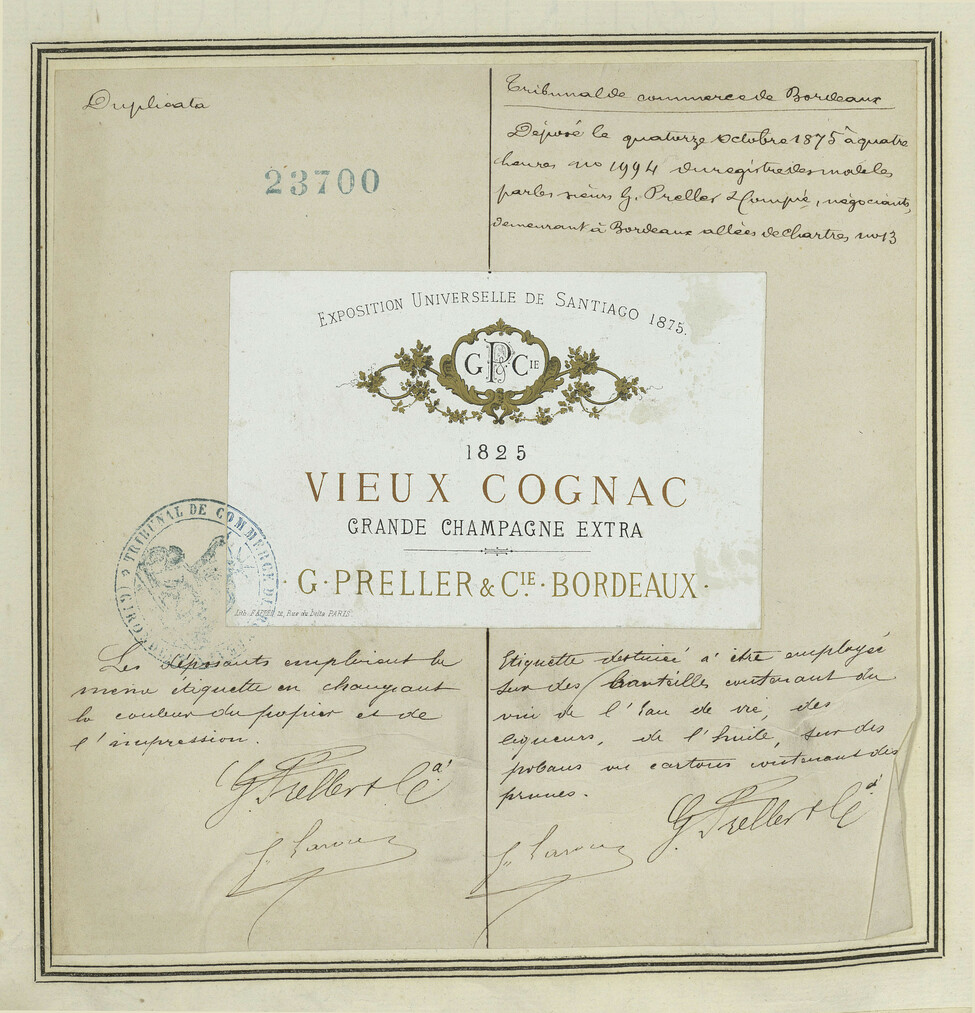 Duplicata
23700
Tribunal de commerce de Bordeaux
Déposé le quatorze octobre 1875 à quatre
heures no 1994 du registre des modèles
par les sieurs G. Preller & Compie, négociants,
demeurant à Bordeaux allées de Chartres no 13
EXPOSITION UNIVERSELLE DE SANTIAGO 1875.
G P & CIE
1825
VIEUX COGNAC
GRANDE CHAMPAGNE EXTRA
· G · PRELLER & CIE · BORDEAUX ·
Rue du Delta PARIS
TRIBUNAL DE COMMERCE DE
(GIRONDE)
Les déposants emploient la
même étiquette en changeant
la couleur du papier et de
l'impression.
G. Preller & Cie
Etiquette destinée à être employée
sur des bouteilles contenant du
vin de l'Eau de vie, des
liqueurs, de l'huile, sur des
pobans ou cartons contenant des
prunes.
G. Preller & Cie